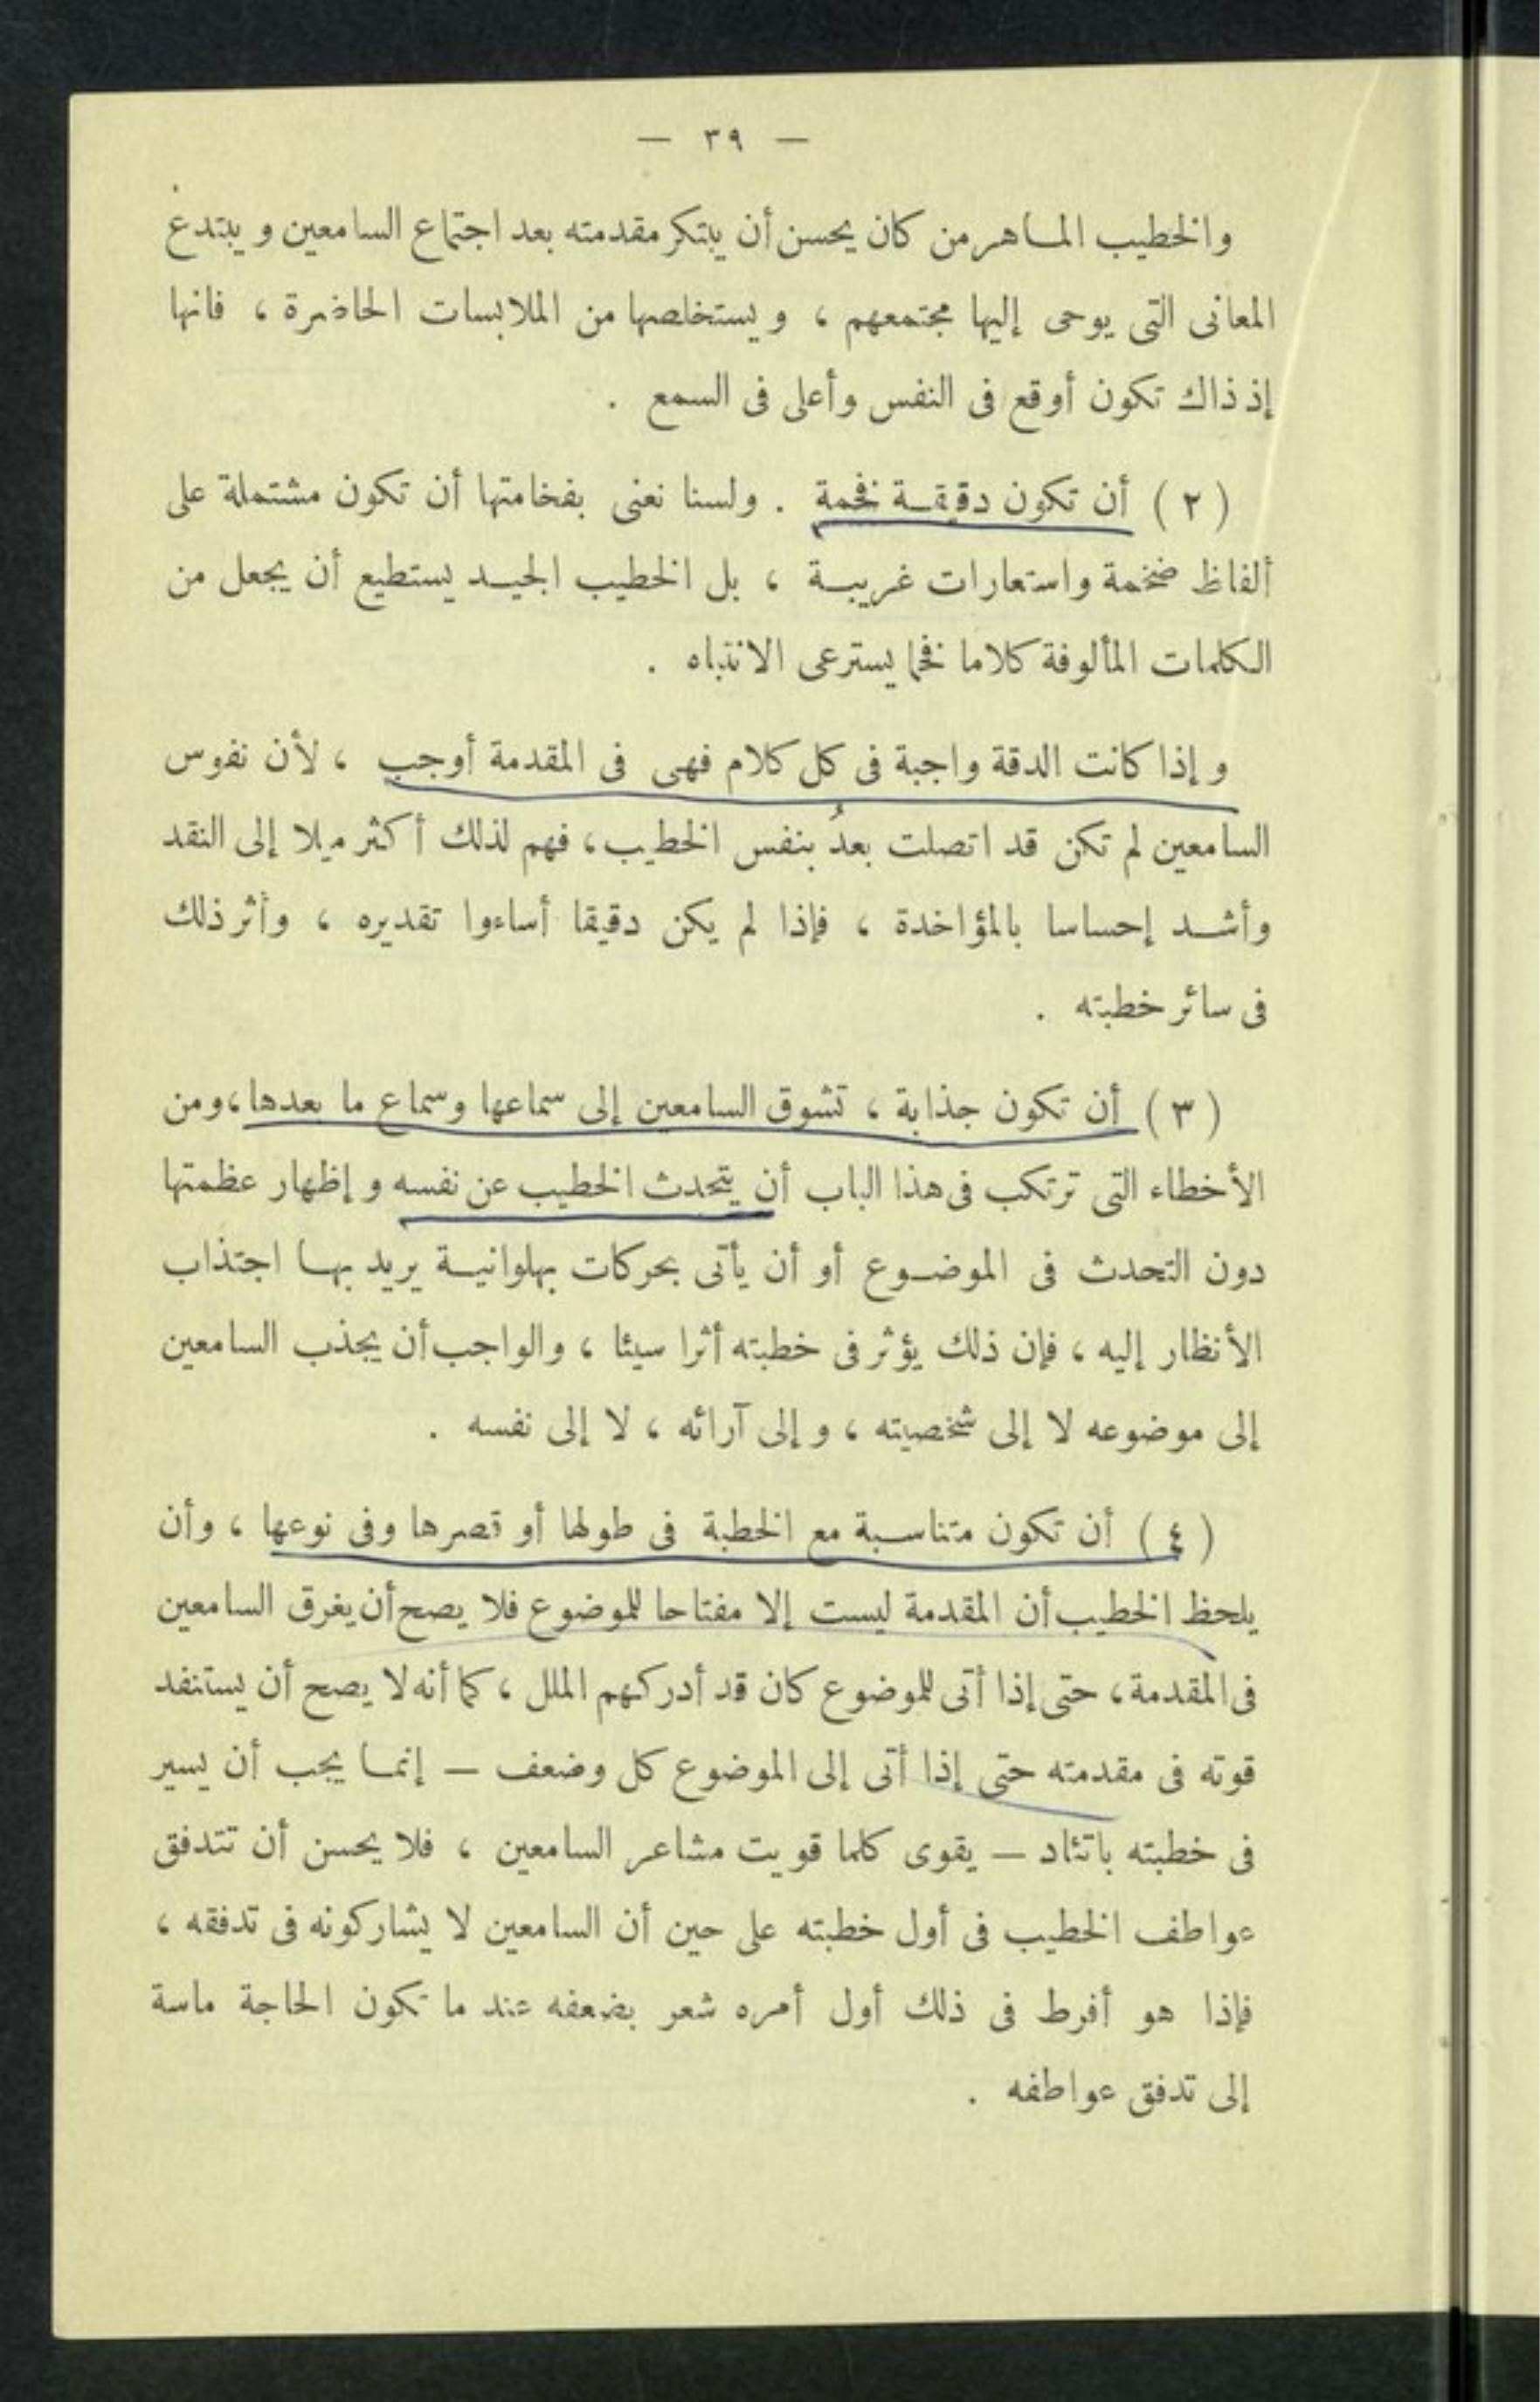 — ٣٩ —
والخطيب المـاهر من كان يحسن أن يبتكر مقدمته بعد اجتماع السامعين ويبتدع
المعانى التى يوحى إليها مجتمعهم ، ويستخلصها من الملابسات الحاضرة ، فانها
إذ ذاك تكون أوقع فى النفس وأعلى فى السمع .
( ٢ ) أن تكون دقيقـة فخمة . ولسنا نعنى بفخامتها أن تكون مشتملة على
ألفاظ ضخمة واستعارات غريبـة ، بل الخطيب الجيـد يستطيع أن يجعل من
الكلمات المألوفة كلاما فخما يسترعى الانتباه .
وإذا كانت الدقة واجبة فى كل كلام فهى فى المقدمة أوجب ، لأن نفوس
السامعين لم تكن قد اتصلت بعدُ بنفس الخطيب ، فهم لذلك أكثر ميلا إلى النقد
وأشـد إحساسا بالمؤاخدة ، فإذا لم يكن دقيقا أساءوا تقديره ، وأثر ذلك
فى سائر خطبته .
( ٣ ) أن تكون جذابة ، تشوق السامعين إلى سماعها وسماع ما بعدها ، ومن
الأخطاء التى ترتكب فى هذا الباب أن يتحدث الخطيب عن نفسه وإظهار عظمتها
دون التحدث فى الموضـوع أو أن يأتى بحركات بهلوانيـة يريد بهـا اجتذاب
الأنظار إليه ، فإن ذلك يؤثر فى خطبته أثرا سيئا ، والواجب أن يجذب السامعين
إلى موضوعه لا إلى شخصيته ، وإلى آرائه ، لا إلى نفسه .
( ٤ ) أن تكون متناسـبة مع الخطبة فى طولها أو قصرها وفى نوعها ، وأن
يلحظ الخطيب أن المقدمة ليست إلا مفتاحا للموضوع فلا يصح أن يغرق السامعين
فى المقدمة ، حتى إذا أتى للموضوع كان قد أدركهم الملل ، كما أنه لا يصح أن يستنفد
قوته فى مقدمته حتى إذا أتى إلى الموضوع كل وضعف — إنمـا يجب أن يسير
فى خطبته باتئاد — يقوى كلما قويت مشاعر السامعين ، فلا يحسن أن تتدفق
عواطف الخطيب فى أول خطبته على حين أن السامعين لا يشاركونه فى تدفقه ،
فإذا هو أفرط فى ذلك أول أمره شعر بضعفه عند ما تكون الحاجة ماسة
إلى تدفق عواطفه .